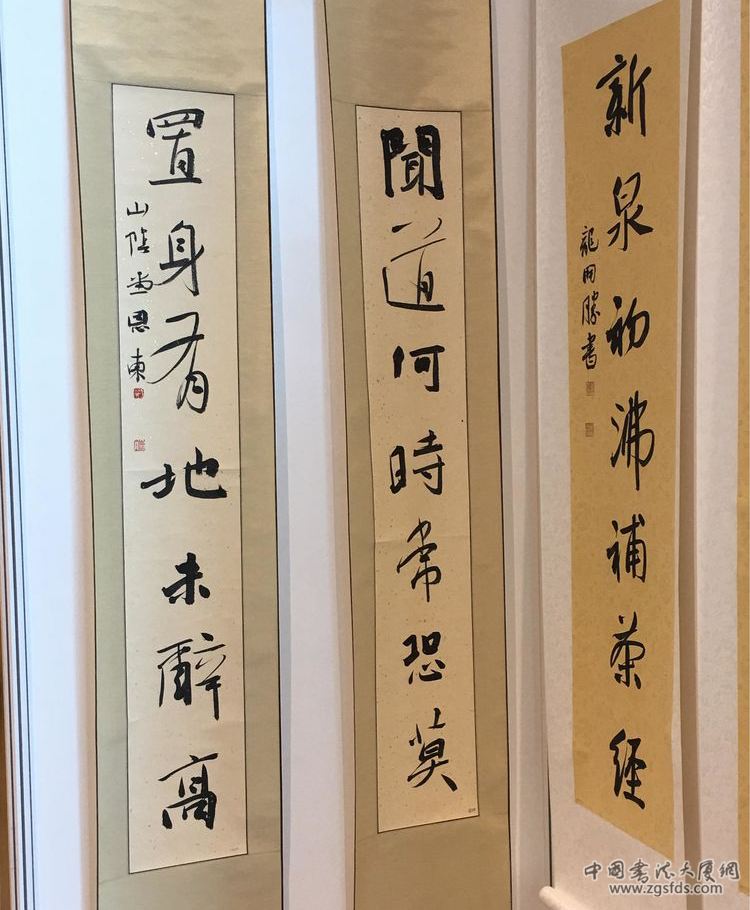 新泉初沸補茶經
龍開勝書
聞道何時常恐莫
置身有地未辭高
山陰恩東
中国书法大厦網
www.zgsfds.com